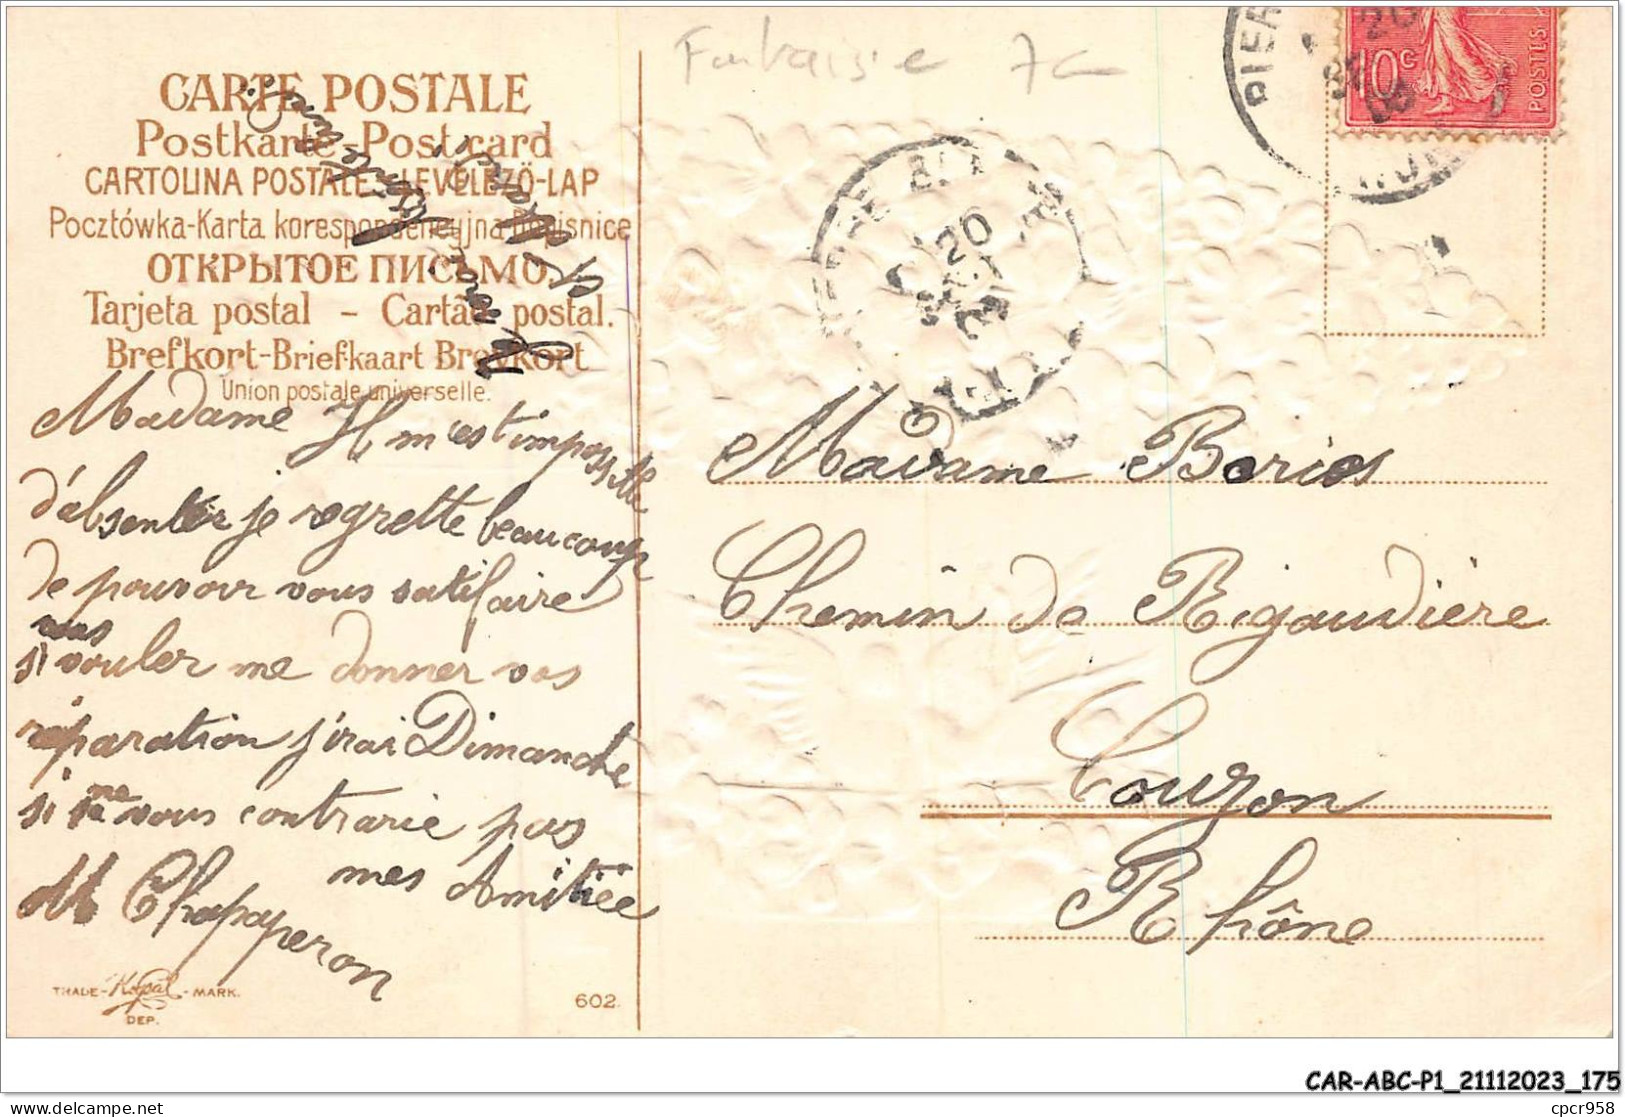 Fantaisie 7c
CARTE POSTALE
Postkarte-Postcard
CARTOLINA POSTALE-LEVELEZÖ-LAP
Pocztówka-Karta korespondencyjna-Dopisnice
ОТКРЫТОЕ ПИСЬМО.
Tarjeta postal – Cartão postal.
Brefkort-Briefkaart Brevkort
Union postale universelle.
10c
POSTES
PIER
20
20
Madame Il m'est impossible
d'absenter je regrette beaucoup
de pouvoir vous satisfaire
vous
si vouler me donner vos
réparation j'irai Dimanche
ne
si sa vous contrarie pas
mes Amitiée
M Chapaperon
Madame Bories
Chemin de Rigaudière
Couzon
Rhône
TRADE- K.opal -MARK.
DEP.
602.
CAR-ABC-P1_21112023_175
cpcr958